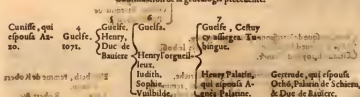 5 6 7
Cunisse, qui
espousa Az-
zo.
4
Guelfe.
1071.
Guelfe,
Henry,
Duc de
Baviere
Guelfe.
Henry l'orgueil-
leux.
Judith,
Sophie,
Vuilbilde.
Guelfe, Cestuy
assiegea Tu-
bingue.
Henry Palatin,
qui espousa A-
gnés Palatine.
Gertrude, qui espousa
Othó, Palatin de Schiern,
& Duc de Baviere.